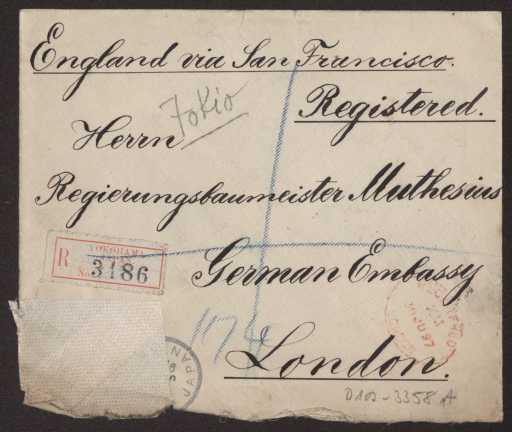 England via San Francisco.
Tokio
Registered.
Herrn
Regierungsbaumeister Muthesius
YOKOHAMA
R
3186
German Embassy
174
JAPAN
London.
D102-3358 A